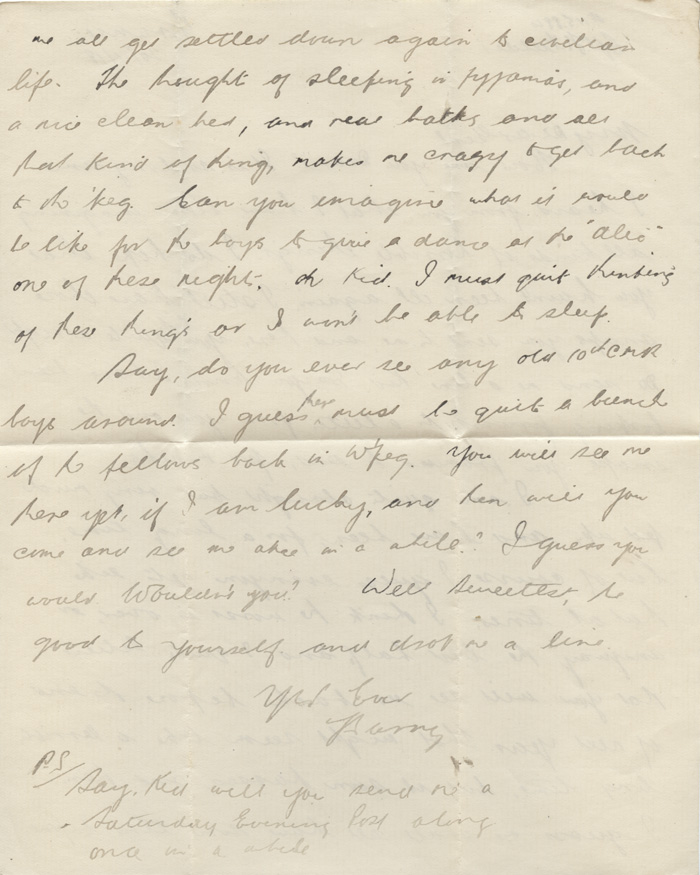 we all get settled down again to civilian
life. The thought of sleeping in pyjamas, and
a nice clean bed, and real baths and all
that kind of thing, makes me crazy to get back
to the 'Peg. Can you imagine what it would
be like for the boys to give a dance at the "Alic"
one of these nights. Oh Kid. I must quit thinking
of these things or I won't be able to sleep.
Say, do you ever see any old 10th CMR
boys around. I guess there must be quite a bunch
of the fellows back in W'peg. You will see me
there yet, if I am lucky, and then will you
come and see me once in a while? I guess you
would Wouldn't you? Well Sweettest, be
good to yourself and drop me a line
Yrs Ever
Barney
P.S/
Say, Kid will you send me a
Saturday Evening Post along
once in a while